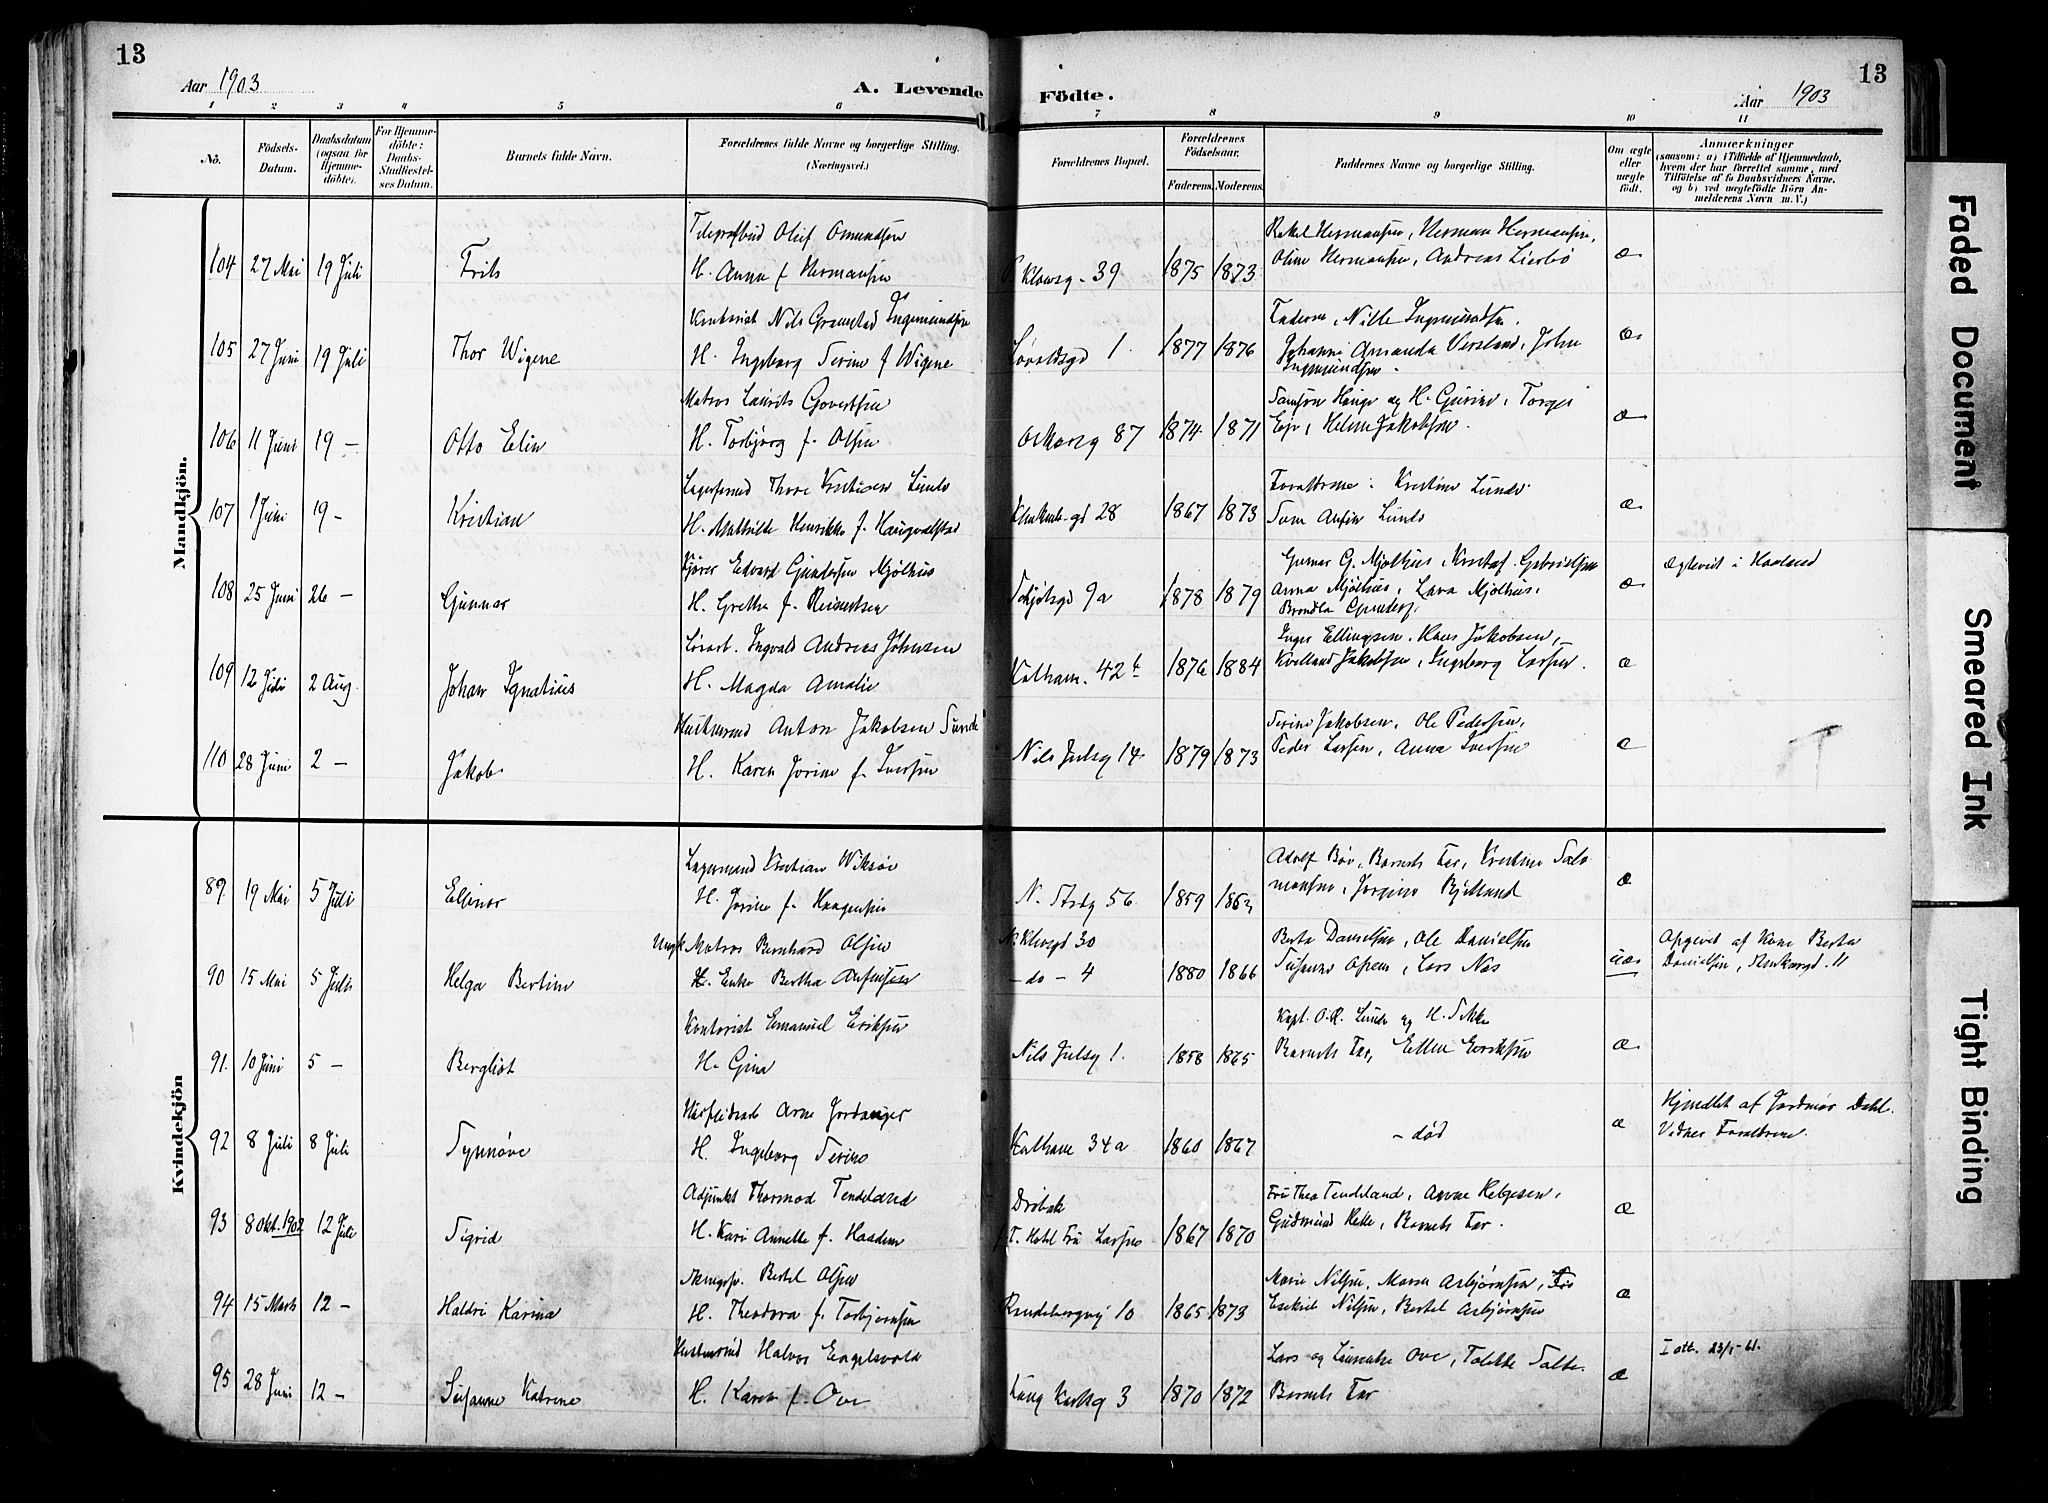 13
Aar 1903
A. Levende
Födte.
Aar 1903
13
1 2 3 4 5 6 7 8 9 10 11
No.
Födsels-
Datum.
Daabsdatum
(ogsaa for
Hjemme-
döbte).
For Hjemme-
döbte:
Daabs-
Stadfæstel-
ses Datum.
Barnets fulde Navn.
Forældrenes fulde Navne og borgerlige Stilling.
(Næringsvei.)
Forældrenes Bopæl.
Forældrenes
Födselsaar.
Faderens. Moderens.
Faddernes Navne og borgerlige Stilling.
Om ægte
eller
uægte
født.
Anmærkninger
(saasom: a) i Tilfælde af Hjemmedaab,
hvem der har forrettet samme, med
Tilföielse af to Daabsvidners Navne,
og b) ved uægtefödte Börn An-
melderens Navn m. V.)
Mandkjön.
Telegrafbud Oluf Omundsen
Rakel Hermansen, Herman Hermansen,
104 27 Mai 19 Juli H. Anna f Hermansen 39 1875 1873 Oline Hermansen, Andreas Lierbö æ
Kontorist Nils Gramstad Ingemundsen
Faderen, Nille Ingemundsen.
105 27 Juni 19 Juli Thor Wigene H. Ingeborg Serine f Wigene Lövoldsgd 1. 1877 1876 Johanne Amanda Versland, John æ
Ingemundsen.
Matros Laurits Govertsen
Hauge og H. Gurine, Torger
106 11 Juni 19 - Otto Elin H. Torbjørg f. Olsen Oskarsg 87 1874 1871 Helene Jakobsen. æ
Lagerformd Thore Kristian Lunde
Forældrene. Kristine Lunde
107 1 Juni 19 - Kristian H. Mathilde Henrikke f. Haugvalstad 28 1867 1873 Lunde æ
Kjører Edvard Gundersen Mjølhus
Gunnar G. Mjølhus, Gabrielsen
Ægteviet i Haaland
108 25 Juni 26 - Gunnar H. Grethe f. Reinertsen 9a 1878 1879 Anna Mjølhus, Lava Mjølhus, æ
Gunders.
Ingvald Andreas Johnsen
Inger Ellingsen, Hans Jakobsen,
109 12 Juli 2 Aug. Johan Ignatius H. Magda Amalie Kalham. 42b 1876 1884 Kvelland Jakobsen, Ingeborg Larsen. æ
Anton Jakobsen Sunde
Serine Jakobsen, Ole Pedersen,
110 28 Juni 2 - Jakob H. Karen Jorine f. Iversen Nils Juelsg 14 1879 1873 Peder Larsen, Anna Iversen æ
Kvindekjön
Lagermand Kristian Wiksøe
Adolf Bøe, Barnets Far, Kristine Salo
89. 19 Mai 5 Juli Ellinor H. Jorine f. Haagensen N. Strdg 56 1859 1863 monsen, Jorgine Bjelland æ
Ungk. Matros Bernhard Olsen
N. Klevsgd 30
Berta Danielsen, Ole Danielsen
Opgivet af Kone Berta
90 15 Mai 5 Juli Helga Bertine Enke Bertha - do - 4 1880 1866 Lars Næs uæ Danielsen, 11
Kontorist Emanuel Eriksen
Kapt. O. R. Lunde og H. Silke
91. 10 Juni 5 - Bergliot H. Gina Nils Juelsg 1. 1858 1865 Barnets Far, Ellen Eriksen æ
Arne Jordanger
Hjmdbt af Jordmor Dahl.
92 8 Juli 8 Juli Synnöve H. Ingeborg Serine Kalhave 34a 1860 1867 - død æ Vidner Forældrene.
Adjunkt Thormod Tendeland
Drøbak
Fru Thea Tendeland, Anne Helgesen,
93 8 Okt. 1902 12 Juli Sigrid H. Kari Annette f. Haadem T. Hotel Fru Larsen 1867 1870 Gudmund Helle, Barnets Far. æ
Bertel Olsen
Marie Nilsen, Maren Asbjørnsen,
94 15 Marts 12 - Haldri Karina H. Theodora f. Torbjørnsen 10 1865 1873 Esekiel Nilsen, Bertel Asbjørnsen æ
Halvor Engelsvold
Lars og Laurentse Ove, Tolette Salte.
I att. 23/1-61.
95 28 Juni 12 - Susanne Katrine H. Karen f. Ove Kong Karlsg 3 1870 1872 Barnets Far æ
Faded Document
Smeared Ink
Tight Binding